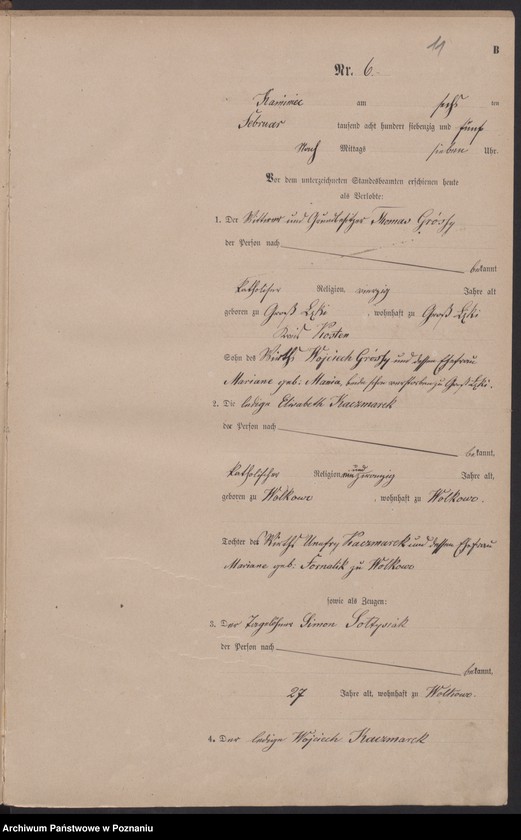 11
B
Nr. 6.
Kaminiec am sechs ten
Februar tausend acht hundert siebenzig und fünf
Nach Mittags sieben Uhr.
Vor dem unterzeichneten Standesbeamten erschienen heute
als Verlobte:
1. Der Wittwer und Grundbesitzer Thomas Gróssy
der Person nach
bekannt
katholischer Religion, vierzig Jahre alt
geboren zu Groß Lęki, wohnhaft zu Groß Lęki
Kreis Kosten
Sohn des Wirths Wojciech Gróssy und dessen Ehefrau
Mariane geb: Maria, beide schon verstorben zu Groß Lęki.
2. Die ledige Elisabeth Kaczmarek
der Person nach
bekannt,
katholischer Religion, und zwanzig Jahre alt,
geboren zu Wolkowo, wohnhaft zu Wolkowo.
Tochter des Wirths Kaczmarek und dessen Ehefrau
Mariane geb: Fornalik zu Wolkowo
sowie als Zeugen:
3. Der Tagelöhner Simon Sołtysiak
der Person nach
bekannt,
27 Jahre alt, wohnhaft zu Wolkowo.
4. Der ledige Wojciech Kaczmarek
Archiwum Państwowe w Poznaniu